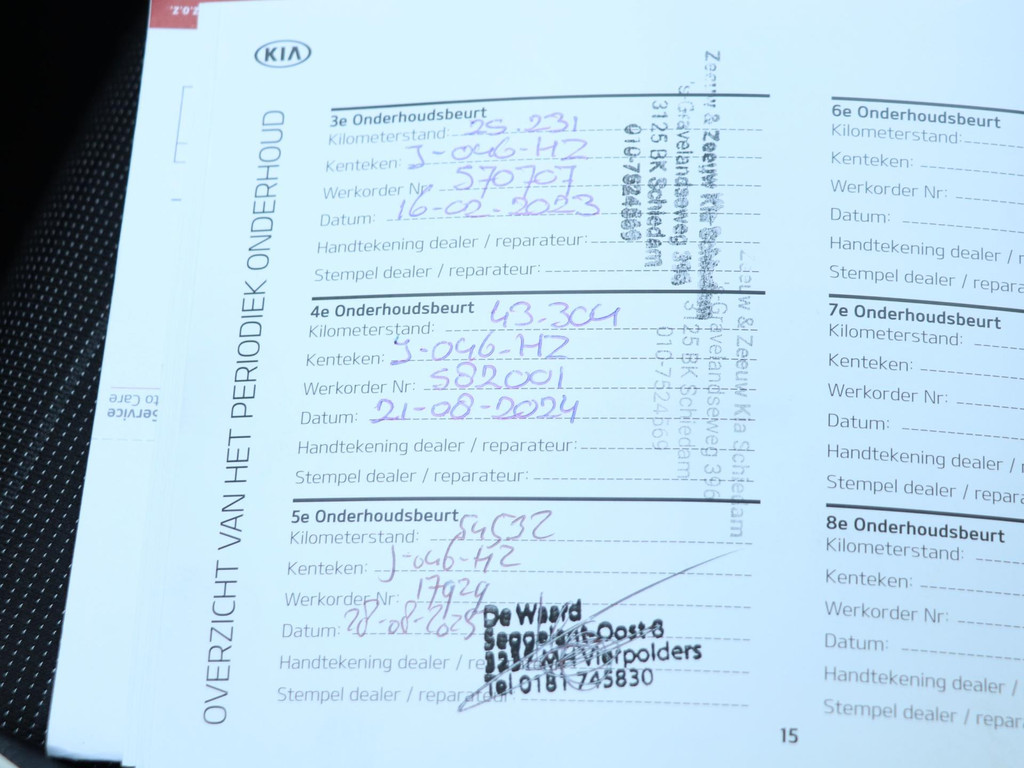 KIA
OVERZICHT VAN HET PERIODIEK ONDERHOUD
3e Onderhoudsbeurt
Kilometerstand: 25.231
Kenteken: J-046-HZ
Werkorder Nr: 570707
Datum: 16-02-2023
Handtekening dealer / reparateur:
Stempel dealer / reparateur:
Zeeuw & Zeeuw Kia Schiedam
's-Gravelandseweg 396
3125 BK Schiedam
010-7524669
4e Onderhoudsbeurt
Kilometerstand: 43.304
Kenteken: J-046-HZ
Werkorder Nr: 582001
Datum: 21-08-2024
Handtekening dealer / reparateur:
Stempel dealer / reparateur:
Zeeuw & Zeeuw Kia Schiedam
's-Gravelandseweg 396
3125 BK Schiedam
010-7524669
5e Onderhoudsbeurt
Kilometerstand: 54532
Kenteken: J-046-HZ
Werkorder Nr: 17929
Datum: 28-08-2025
Handtekening dealer / re
Stempel dealer / reparateur:
De Waard
Seggelant-Oost 8
Vierpolders
Tel 0181 745830
6e Onderhoudsbeurt
Kilometerstand:
Kenteken:
Werkorder Nr:
Datum:
Handtekening dealer / r
Stempel dealer / repara
7e Onderhoudsbeurt
Kilometerstand:
Kenteken:
Werkorder Nr:
Datum:
Handtekening dealer / r
Stempel dealer / repara
8e Onderhoudsbeurt
Kilometerstand:
Kenteken:
Werkorder Nr:
Datum:
Handtekening dealer /
Stempel dealer / repar
15
Service
to Care